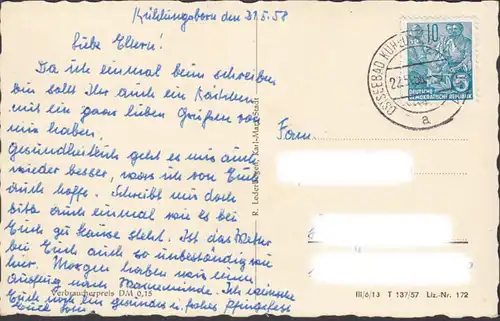 Kühlungsborn den 21.5.58
Liebe Eltern!
Da ich einmal beim schreiben
bin sollt Ihr auch ein Kärtchen
mit ein paar lieben Grüßen von
mir haben.
Gesundheitlich geht es mir auch
wieder besser, was ich von Euch
auch hoffe. Schreibt mir doch
bitte auch einmal wie es bei
Euch zu Hause steht. Ist das Wetter
bei Euch auch so unbeständig wie
hier. Morgen haben wir einen
Ausflug nach Warnemünde. Ich wünsche
Euch noch ein gesundes u. frohes Pfingstfest
Verbraucherpreis DM 0,15
R. Lederbogen, Karl-Marx-Stadt
OSTSEEBAD
a
10
5
DEUTSCHE
DEMOKRATISCHE REPUBLIK
Fam.
III/6/13 T 137/57 Liz.-Nr. 172